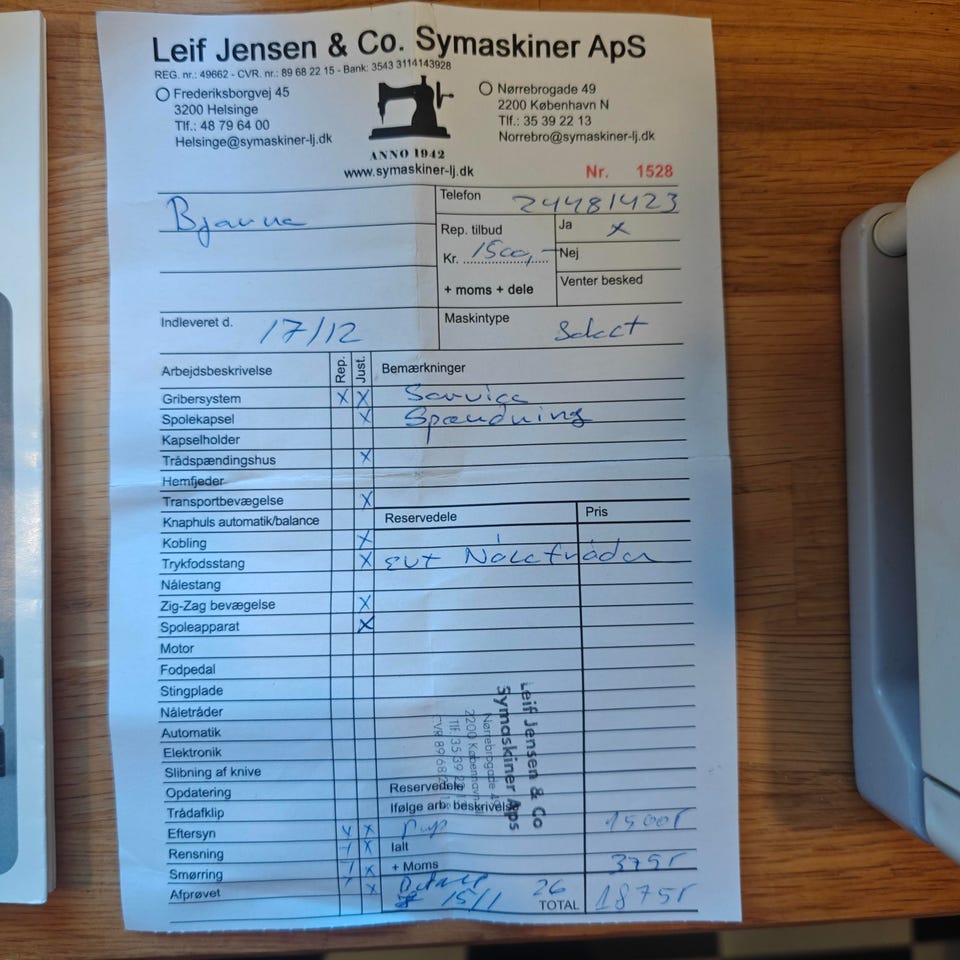 Leif Jensen & Co. Symaskiner ApS
REG. nr.: 49662 - CVR. nr.: 89 68 22 15 - Bank: 3543 3114143928
Frederiksborgvej 45
3200 Helsinge
Tlf.: 48 79 64 00
Helsinge@symaskiner-lj.dk
ANNO 1942
www.symaskiner-lj.dk
Nørrebrogade 49
2200 København N
Tlf.: 35 39 22 13
Norrebro@symaskiner-lj.dk
Nr. 1528
Bjarne
Telefon 24481423
Rep. tilbud
Kr. 1500,-
+ moms + dele
Ja x
Nej
Venter besked
Indleveret d. 17/12
Maskintype Select
Arbejdsbeskrivelse Rep. Just. Bemærkninger
Gribersystem x x Service
Spolekapsel x Spænding
Kapselholder
Trådspændingshus x
Hemfjeder
Transportbevægelse x
Knaphuls automatik/balance Reservedele Pris
Kobling x
Trykfodsstang x evt Nåletråder
Nålestang
Zig-Zag bevægelse x
Spoleapparat x
Motor
Fodpedal
Stingplade
Nåletråder
Automatik
Elektronik
Slibning af knive
Opdatering Reservedele
Trådafklip Ifølge arb. beskrivelse 1500
Eftersyn x x
Rensning x Ialt
Smørring x + Moms 375
Afprøvet x 15/1 26 TOTAL 1875
Leif Jensen & Co
Symaskiner Aps
Nørrebrogade 4
2200 København
Tlf. 35 39 2
CVR 89 68